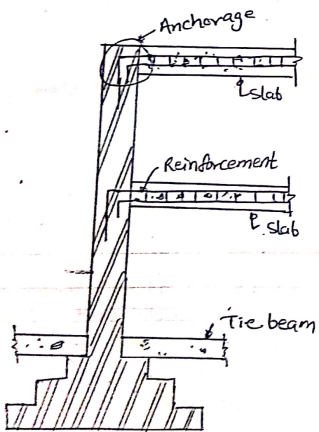 Anchorage
slab
Reinforcement
slab
Tie beam